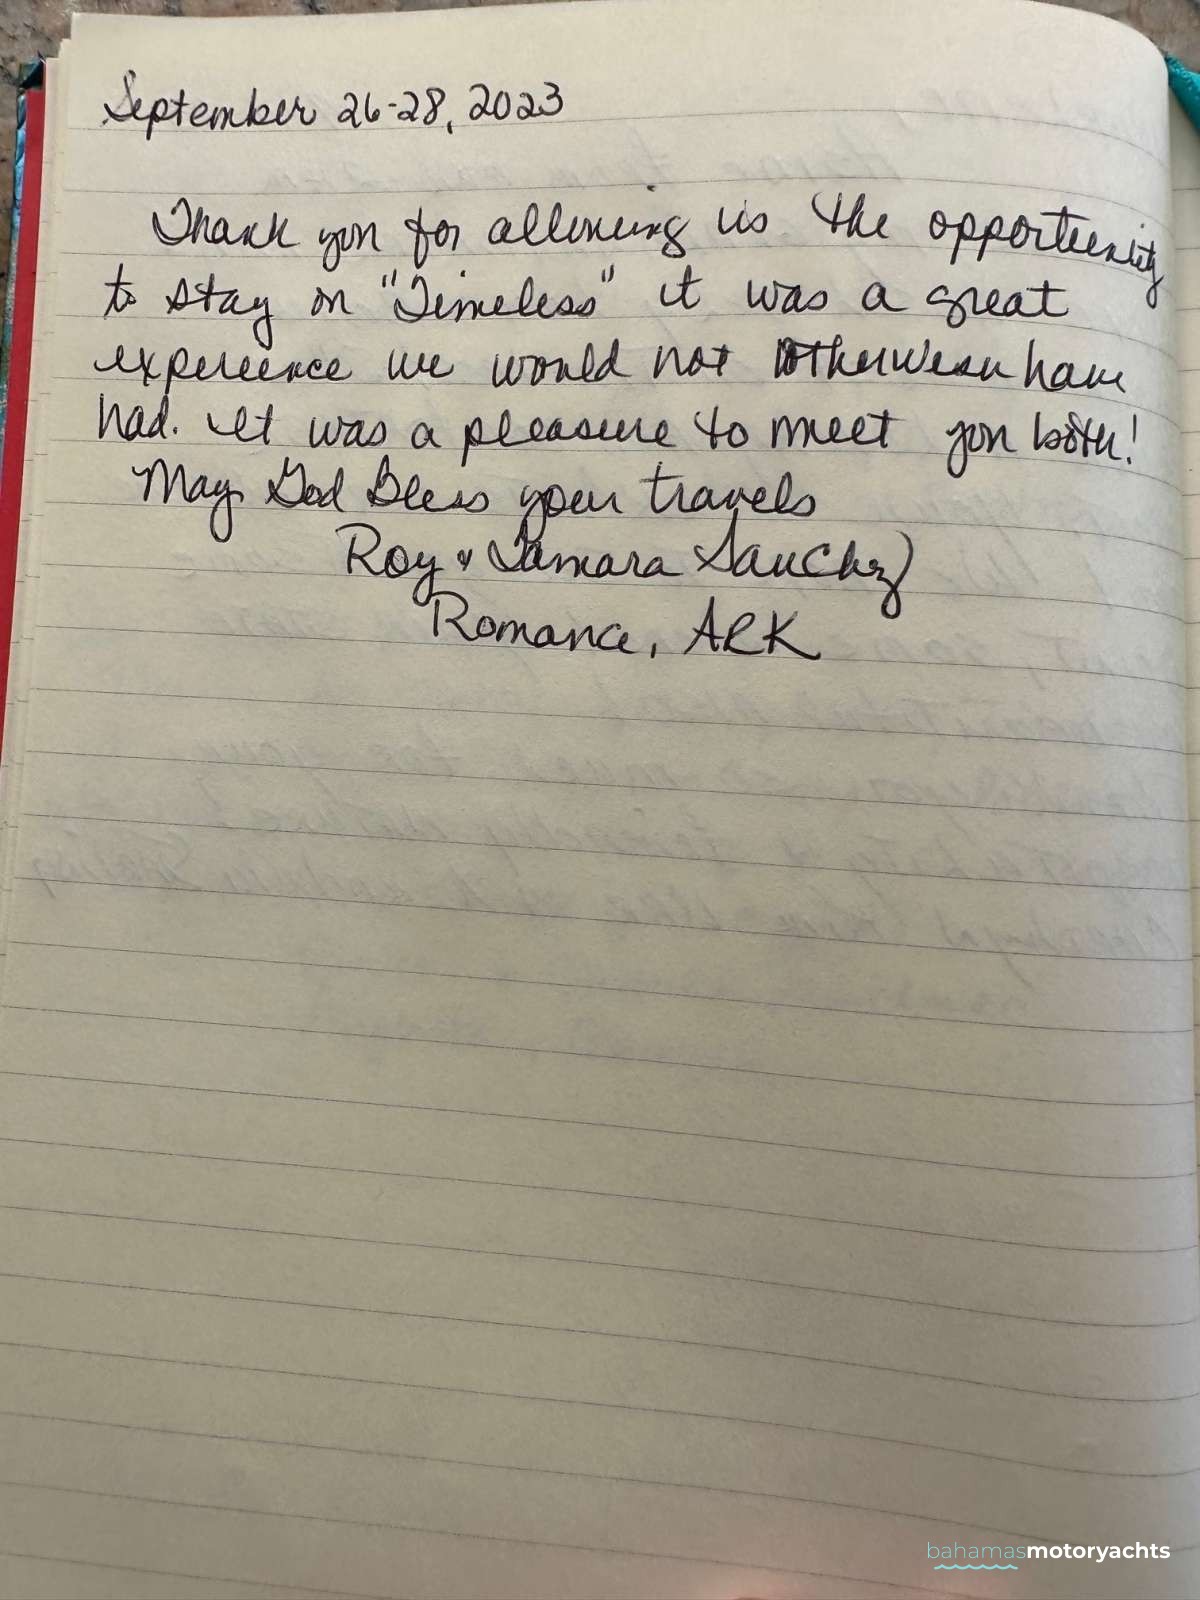 September 26-28, 2023
Thank you for allowing us the opportunity
to stay on "Timeless" it was a great
experience we would not otherwise have
had. It was a pleasure to meet you both!
May God Bless your travels
Roy & Tamara Sanchez
Romance, ARK
bahamasmotoryachts